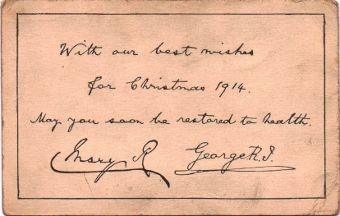 With our best wishes
for Christmas 1914.
May you soon be restored to health.
Mary R George R.I.